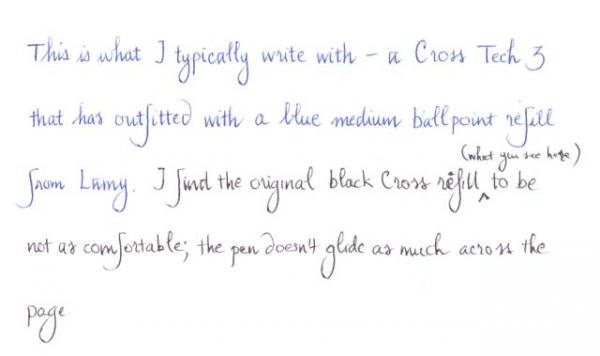 This is what I typically write with – a Cross Tech 3
that has outfitted with a blue medium ballpoint refill
(what you see here)
from Lamy. I find the original black Cross refill ^ to be
not as comfortable; the pen doesn't glide as much across the
page